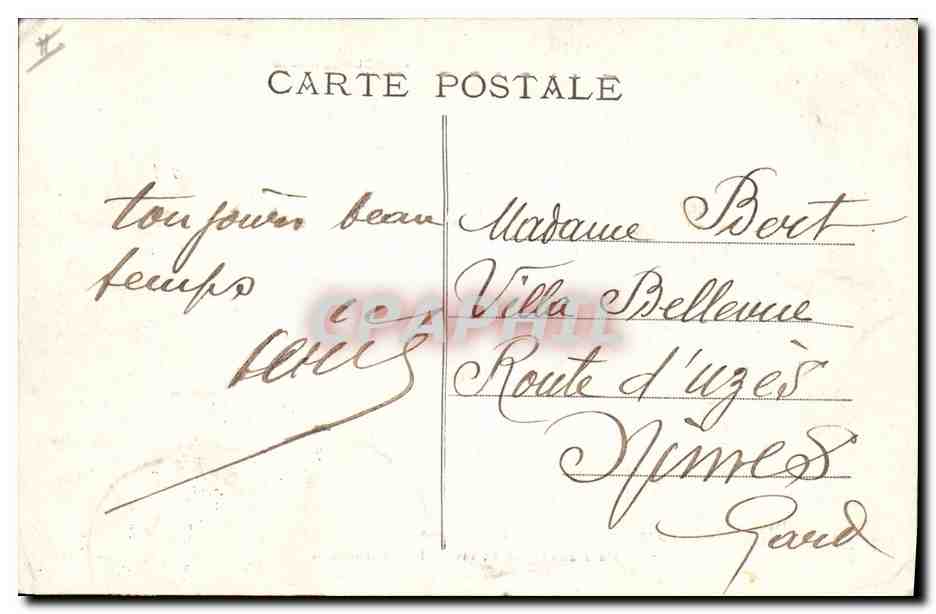 CARTE POSTALE
toujours beau
temps
Madame Bert
Villa Bellevue
Route d'uzès
Nimes
Gard
CPAPHIL